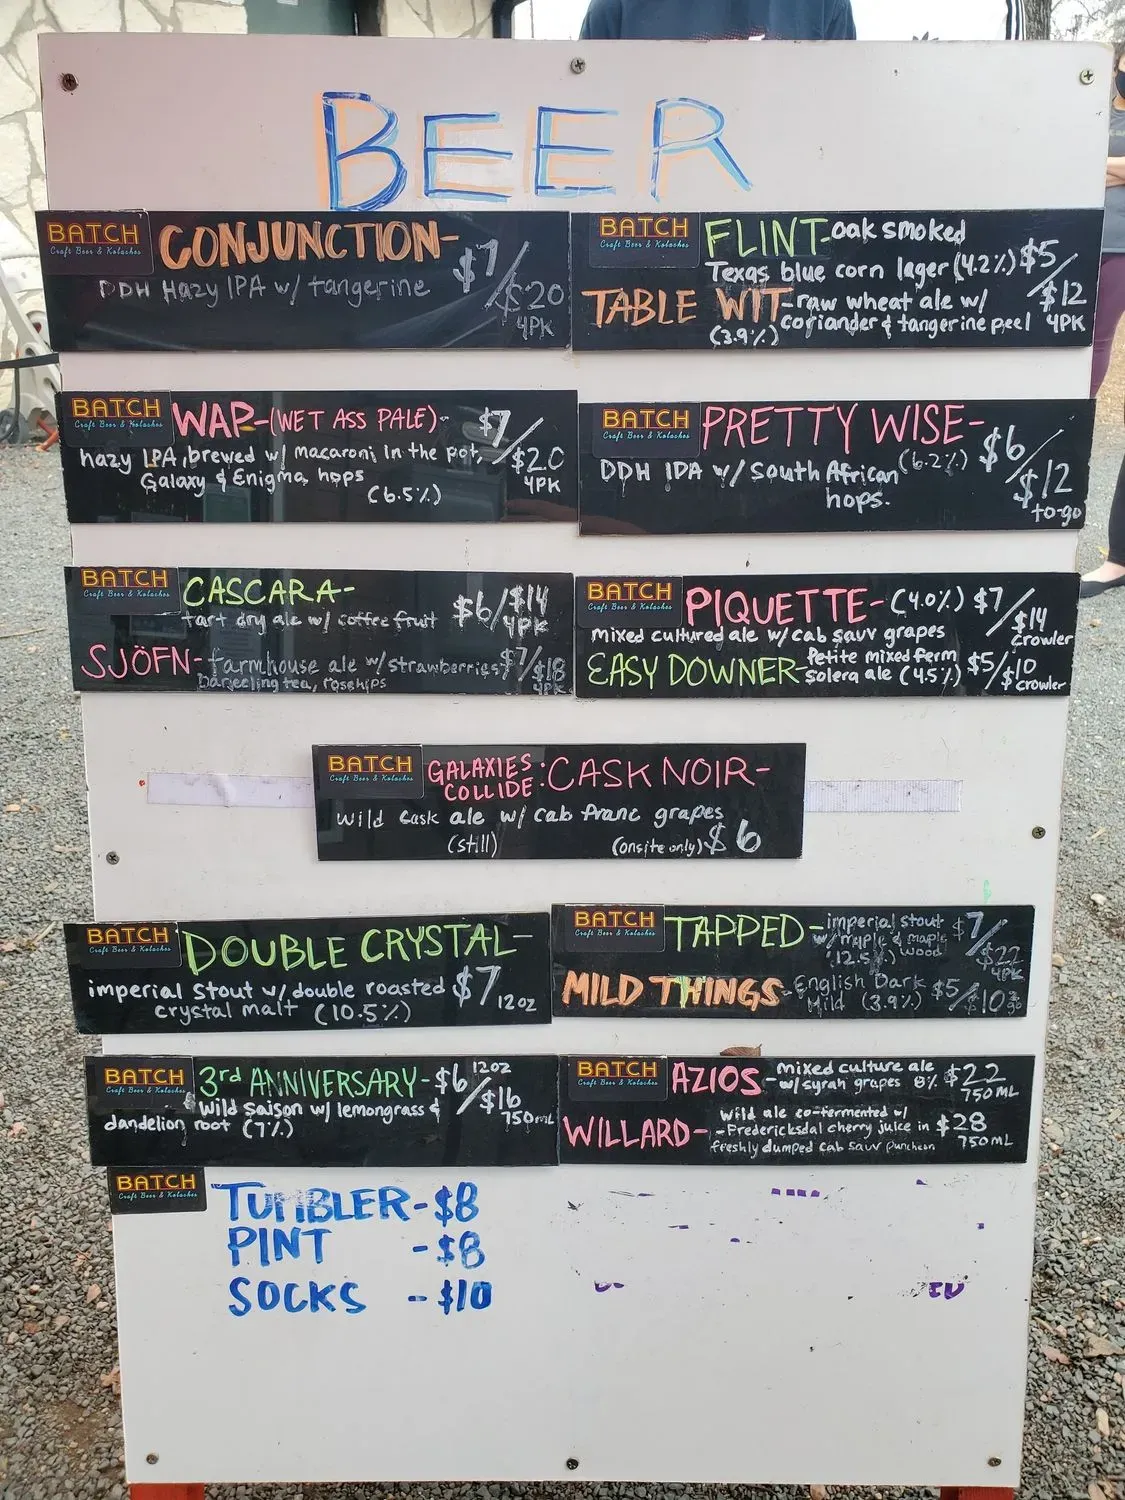 BEER
BATCH
Craft Beer & Kolaches
CONJUNCTION-
DDH Hazy IPA w/ tangerine
$7/$20
4PK
BATCH
Craft Beer & Kolaches
FLINT-oak smoked
Texas blue corn lager (4.2%) $5
TABLE WIT-raw wheat ale w/ /$12
(3.9%) coriander & tangerine peel 4PK
BATCH
Craft Beer & Kolaches
WAP-(WET ASS PALE)- $7
hazy IPA, brewed w/ macaroni in the pot, /$20
Galaxy & Enigma hops 4PK
(6.5%)
BATCH
Craft Beer & Kolaches
PRETTY WISE-
DDH IPA w/ South African (6.2%) $6
hops. /$12
to-go
BATCH
Craft Beer & Kolaches
CASCARA-
tart dry ale w/ coffee fruit $6/$14
4PK
SJÖFN-farmhouse ale w/strawberries, $7/$18
Darjeeling tea, rosehips 4PK
BATCH
Craft Beer & Kolaches
PIQUETTE-(4.0%) $7/$14
mixed cultured ale w/cab sauv grapes crowler
EASY DOWNER-Petite mixed ferm $5/$10
solera ale (4.5%) crowler
BATCH
Craft Beer & Kolaches
GALAXIES COLLIDE: CASK NOIR-
wild cask ale w/ cab franc grapes
(still) (onsite only) $6
BATCH
Craft Beer & Kolaches
DOUBLE CRYSTAL-
imperial stout w/ double roasted $7
crystal malt (10.5%) 12oz
BATCH
Craft Beer & Kolaches
TAPPED-imperial stout $7
w/maple & maple
(12.5%) wood /$22
4PK
MILD THINGS-English Dark $5/$10
Mild (3.9%)
BATCH
Craft Beer & Kolaches
3rd ANNIVERSARY-$6 12oz
wild saison w/ lemongrass & /$16
dandelion root (7%) 750mL
BATCH
Craft Beer & Kolaches
AZIOS-mixed culture ale
w/ syrah grapes 8% $22
750ML
WILLARD-wild ale co-fermented w/
-Fredericksdal cherry juice in $28
freshly dumped cab sauv puncheon 750ML
BATCH
Craft Beer & Kolaches
TUMBLER-$8
PINT -$8
SOCKS -$10